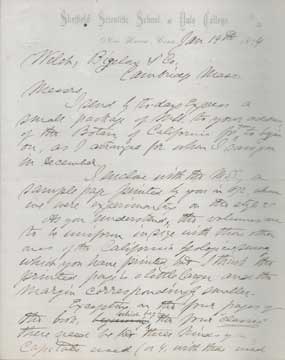 Sheffield Scientific School of Yale College,
New Haven, Conn. Jan 19th
Welch, Bigelow & Co,
Cambridge Mass
Messrs,
I send by to days express a
small package of MSS to your address
of the Botany of California to begin
on, as I arranged for when I saw you
in December
I enclose with the MSS, a
sample page printed by you in
we were experimenting on the style
As you understand, the volumes are
to be uniform in size with the other
ones of the California Geological Survey
which you have printed but I think the
printed page is a little long and the
margin correspondingly smaller.
Excepting on the four pages of
the
there need be but three kinds of
Capitals used (or 4, with the small